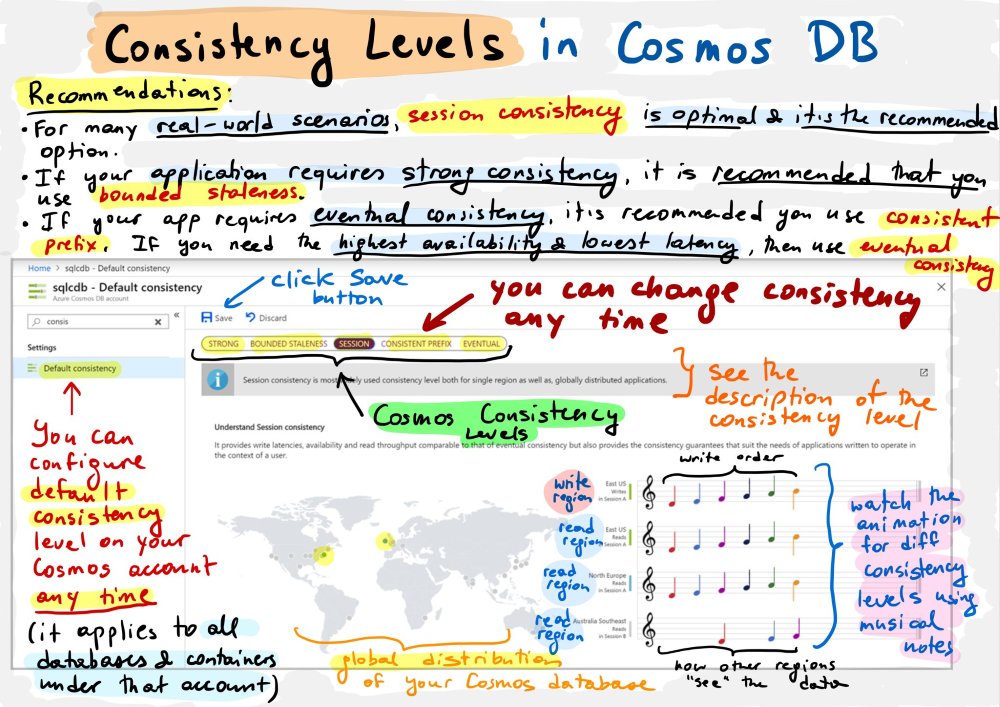 Consistency Levels in Cosmos DB
Recommendations:
• For many real-world scenarios, session consistency is optimal & it's the recommended
option.
• If your application requires strong consistency, it is recommended that you
use bounded staleness.
• If your app requires eventual consistency, it's recommended you use consistent
prefix. If you need the highest availability & lowest latency, then use eventual
consistency
Home > sqlcdb - Default consistency
sqlcdb - Default consistency
Azure Cosmos DB account
consis
Settings
Default consistency
You can
configure
default
consistency
level on your
Cosmos account
any time
(it applies to all
databases &
containers
under that account)
click Save
button
Save
Discard
you can change consistency
any time
STRONG
BOUNDED STALENESS
SESSION
CONSISTENT PREFIX
EVENTUAL
Session consistency is most widely used consistency level both for single region as well as, globally distributed applications.
see the
description of the
consistency level
Cosmos Consistency
Levels
Understand Session consistency
It provides write latencies, availability and read throughput comparable to that of eventual consistency but also provides the consistency guarantees that suit the needs of applications written to operate in
the context of a user.
write order
write
region
East US
Writes
in Session A
read
region
East US
Reads
in Session A
read
region
North Europe
Reads
in Session A
read
region
Australia Southeast
Reads
in Session B
watch the
animation
for diff
consistency
levels using
musical
notes
global distribution
of your Cosmos database
how other regions
"see" the data